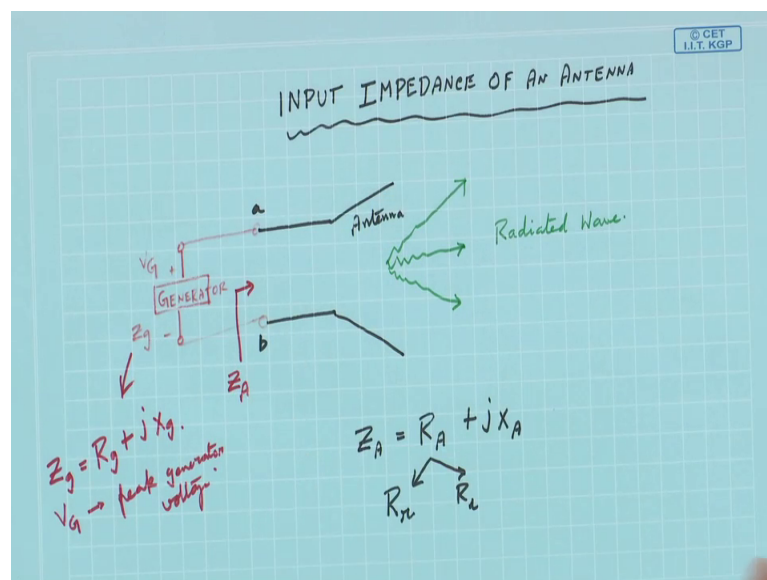 © CET
I.I.T. KGP
INPUT IMPEDANCE OF AN ANTENNA
a
Antenna
Radiated Wave.
VG +
GENERATOR
Zg -
b
ZA
Zg = Rg + jXg.
VG → peak generator
voltage.
ZA = RA + jXA
Rr Rl